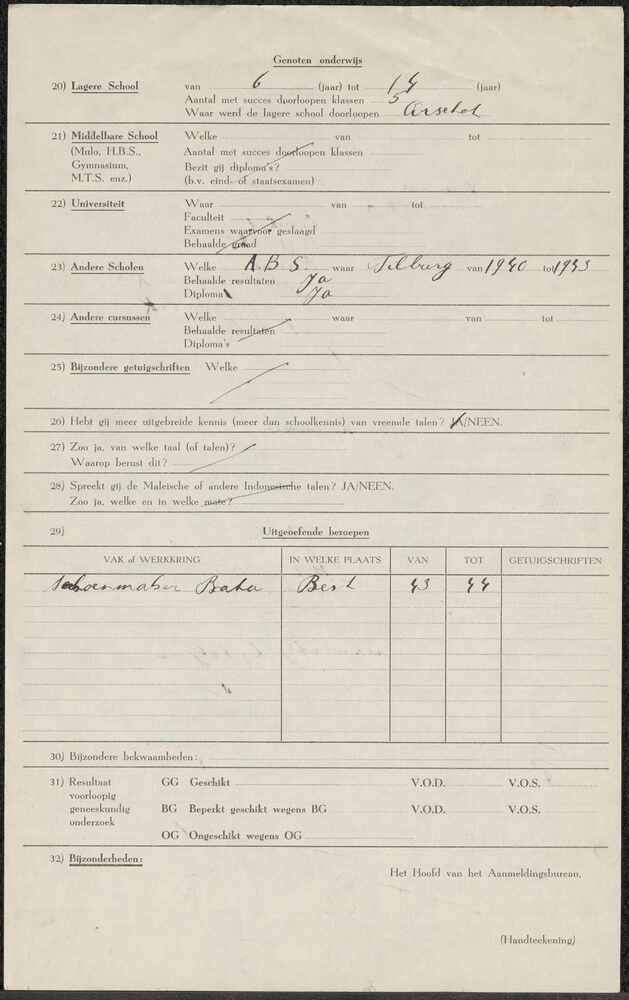 Genoten onderwijs
20) Lagere School van 6 (jaar) tot 14 (jaar)
Aantal met succes doorloopen klassen 5
Waar werd de lagere school doorloopen Arschot
21) Middelbare School Welke van tot
(Mulo, H.B.S., Aantal met succes doorloopen klassen
Gymnasium, Bezit gij diploma's?
M.T.S. enz.) (b.v. eind- of staatsexamen)
22) Universiteit Waar van tot
Faculteit
Examens waarvoor geslaagd
Behaalde graad
23) Andere Scholen Welke A.B.S waar Tilburg van 1940 tot 1943
Behaalde resultaten Ja
Diploma Ja
24) Andere cursussen Welke waar van tot
Behaalde resultaten
Diploma's
25) Bijzondere getuigschriften Welke
26) Hebt gij meer uitgebreide kennis (meer dan schoolkennis) van vreemde talen? JA/NEEN.
27) Zoo ja, van welke taal (of talen)?
Waarop berust dit?
28) Spreekt gij de Maleische of andere Indonesische talen? JA/NEEN.
Zoo ja, welke en in welke mate?
29) Uitgeoefende beroepen
VAK of WERKKRING IN WELKE PLAATS VAN TOT GETUIGSCHRIFTEN
Schoenmaker Bata Best 43 44
30) Bijzondere bekwaamheden:
31) Resultaat GG Geschikt V.O.D. V.O.S.
voorloopig
geneeskundig BG Beperkt geschikt wegens BG V.O.D. V.O.S.
onderzoek
OG Ongeschikt wegens OG
32) Bijzonderheden:
Het Hoofd van het Aanmeldingsbureau,
(Handteekening)